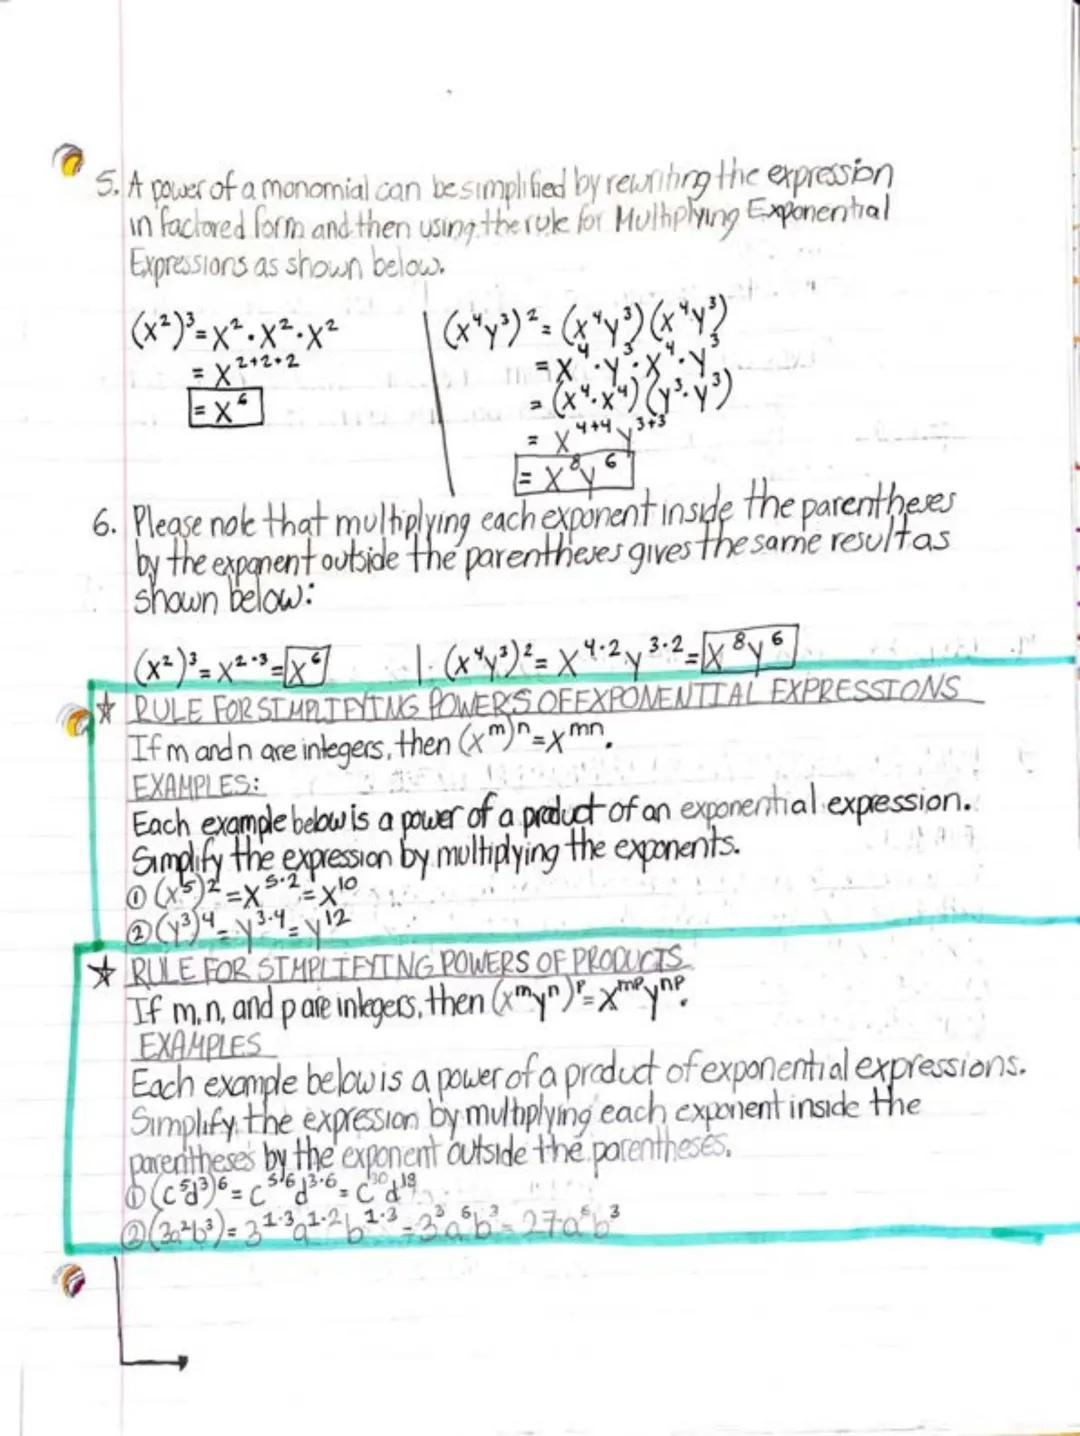 5. A power of a monomial can be simplified by rewriting the expression
in factored form and then using the rule for Multiplying Exponential
Expressions as shown below.
(x²)³=x²·x²·x²
= x²⁺²⁺²
= x⁶
(x⁴y³)²= (x⁴y³)(x⁴y³)
= x⁴·y³·x⁴·y³
= (x⁴·x⁴)(y³·y³)
= x⁴⁺⁴y³⁺³
= x⁸y⁶
6. Please note that multiplying each exponent inside the parentheses
by the exponent outside the parentheses gives the same result as
shown below:
(x²)³=x²·³=x⁶ | (x⁴y³)²= x⁴·²y³·²=x⁸y⁶
☆ RULE FOR SIMPLIFYING POWERS OF EXPONENTIAL EXPRESSIONS
If m and n are integers, then (xᵐ)ⁿ=xᵐⁿ.
EXAMPLES:
Each example below is a power of a product of an exponential expression.
Simplify the expression by multiplying the exponents.
① (x⁵)²=x⁵·²=x¹⁰
② (y³)⁴=y³·⁴=y¹²
☆ RULE FOR SIMPLIFYING POWERS OF PRODUCTS
If m, n, and p are integers, then (xᵐyⁿ)ᵖ=xᵐᵖyⁿᵖ.
EXAMPLES
Each example below is a power of a product of exponential expressions.
Simplify the expression by multiplying each exponent inside the
parentheses by the exponent outside the parentheses.
① (c⁵d³)⁶= c⁵·⁶d³·⁶= c³⁰d¹⁸
② (3a²b³)= 3¹·³a¹·²b¹·³=3³a⁶b³=27a⁶b³